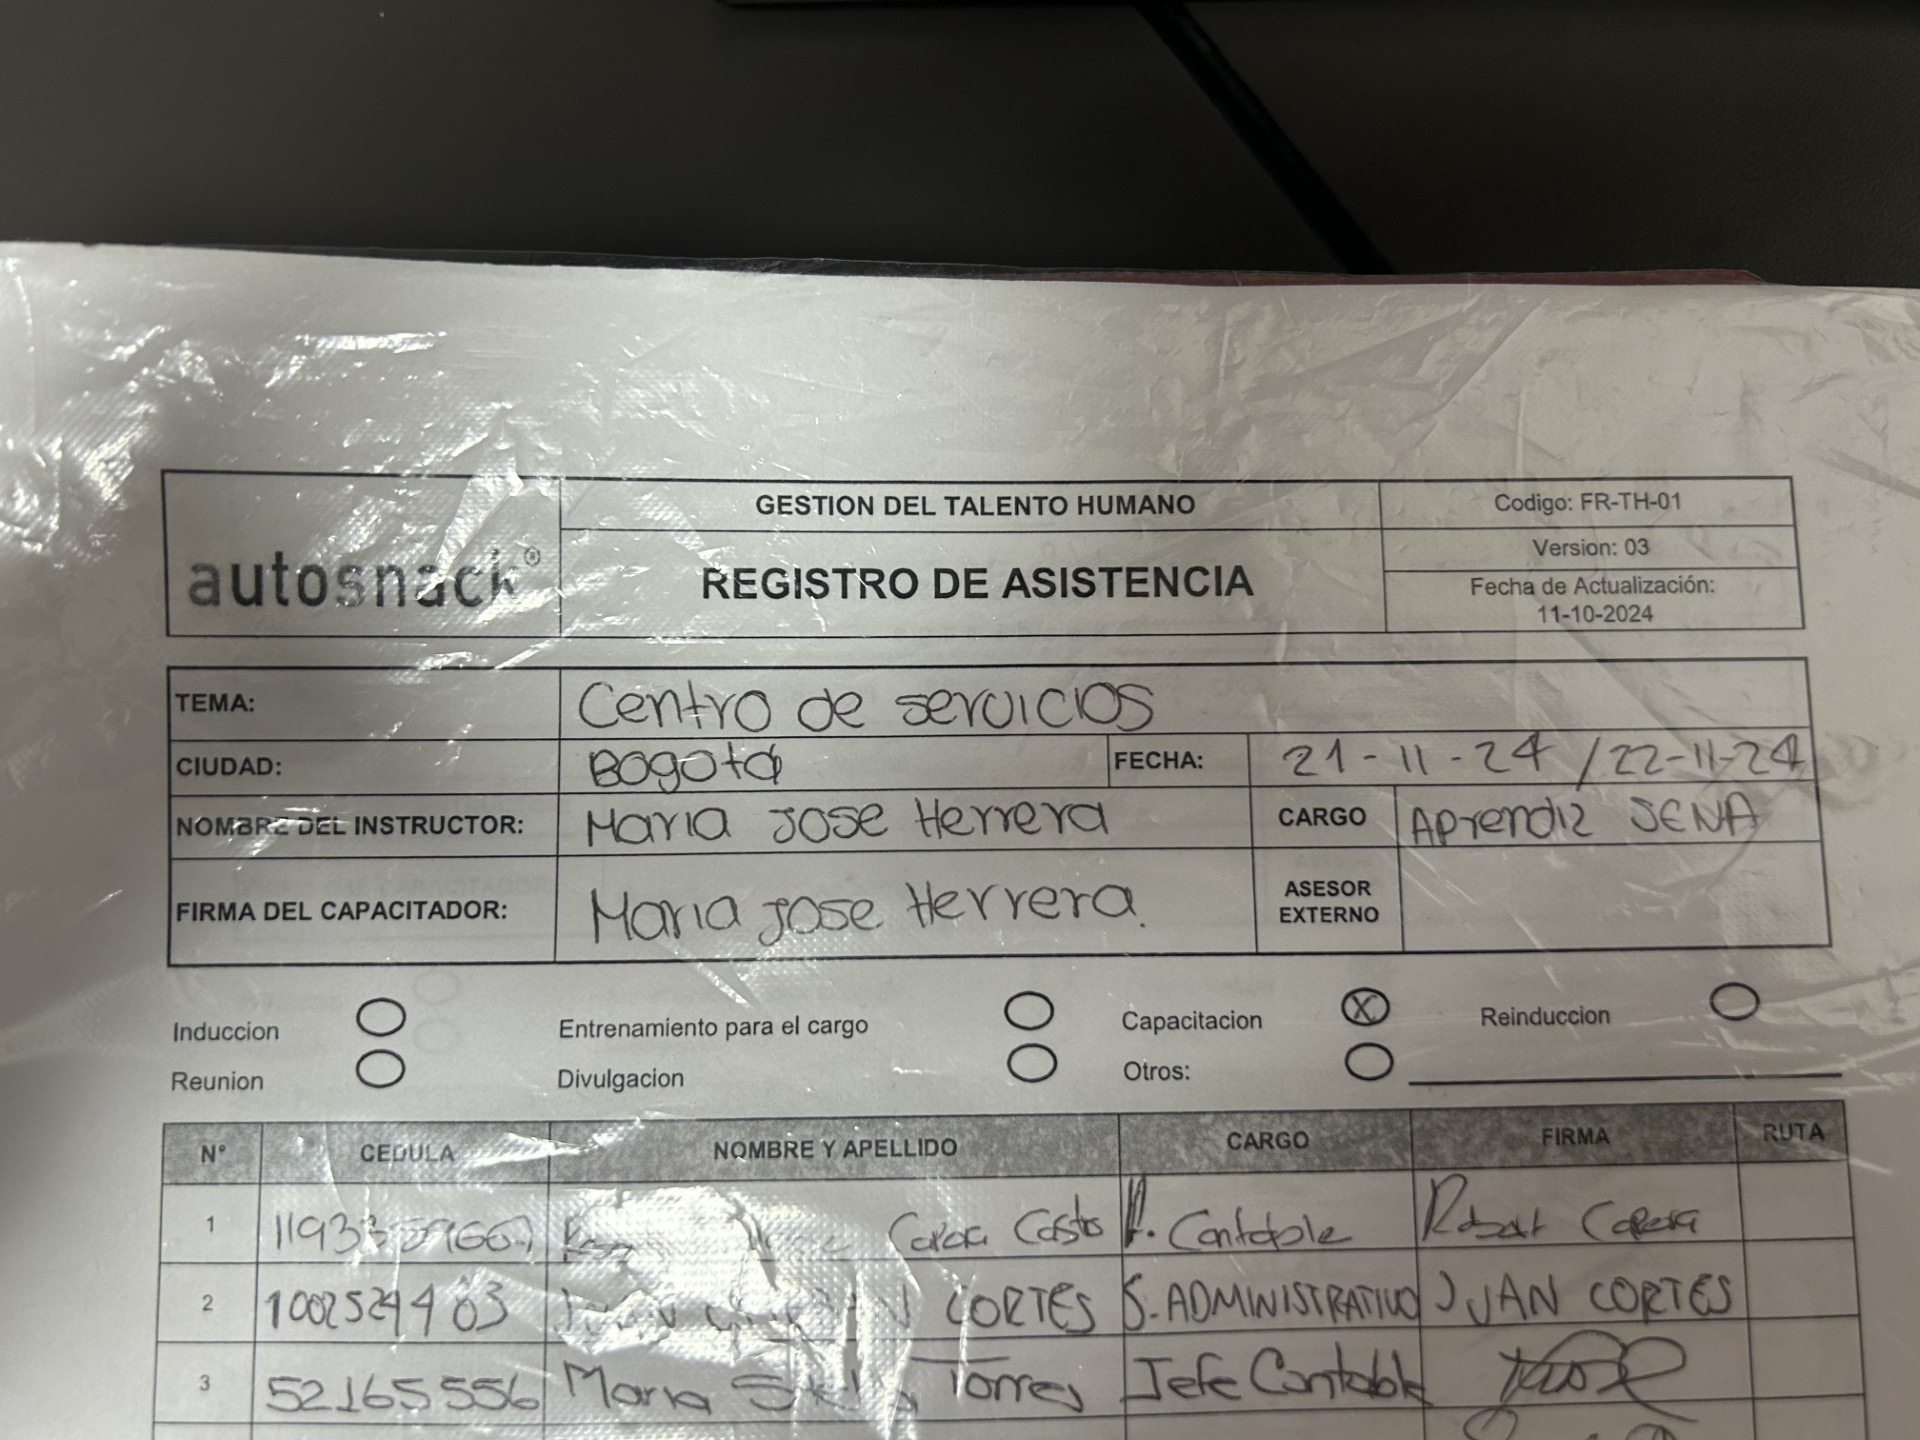 GESTION DEL TALENTO HUMANO
Codigo: FR-TH-01
autosnack®
REGISTRO DE ASISTENCIA
Version: 03
Fecha de Actualización:
11-10-2024
TEMA: Centro de servicios
CIUDAD: Bogotá FECHA: 21-11-24 / 22-11-24
NOMBRE DEL INSTRUCTOR: Maria Jose Herrera CARGO Aprendiz SENA
FIRMA DEL CAPACITADOR: Maria Jose Herrera. ASESOR EXTERNO
Induccion Entrenamiento para el cargo Capacitacion X Reinduccion
Reunion Divulgacion Otros:
N° CEDULA NOMBRE Y APELLIDO CARGO FIRMA RUTA
1 Castro Contable
2 CORTES S. ADMINISTRATIVO JUAN CORTES
3 52165556 Maria Torres Jefe Contable